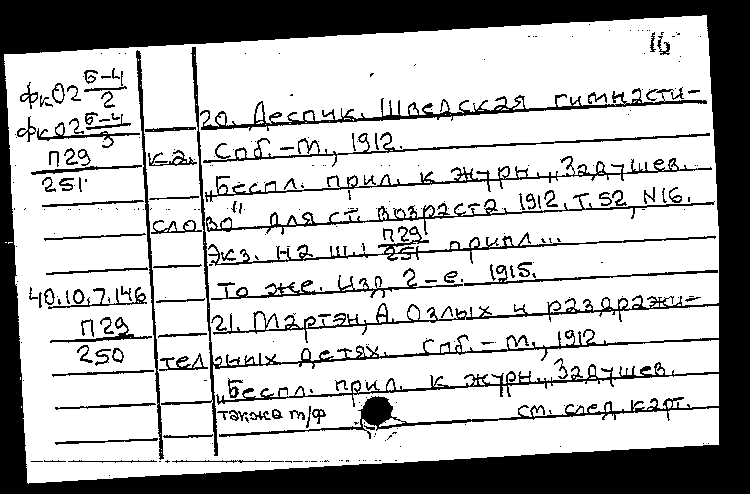 16
ФкО2 6-4/2
ФкО2 6-4/3
П29
251
20. Деспик. Шведская гимнасти-
ка. Спб.-М., 1912.
„Беспл. прил. к журн. „Задушев.
слово" для ст. возраста. 1912. Т. 52, N16.
Экз. на ш.: П29/251 припл...
То же. Изд. 2-е. 1915.
40.10.7.146
П29
250
21. Мартэн, А. О злых и раздражи-
тельных детях. Спб.-М., 1912.
„Беспл. прил. к журн. „Задушев.
также м/ф
см. след. карт.